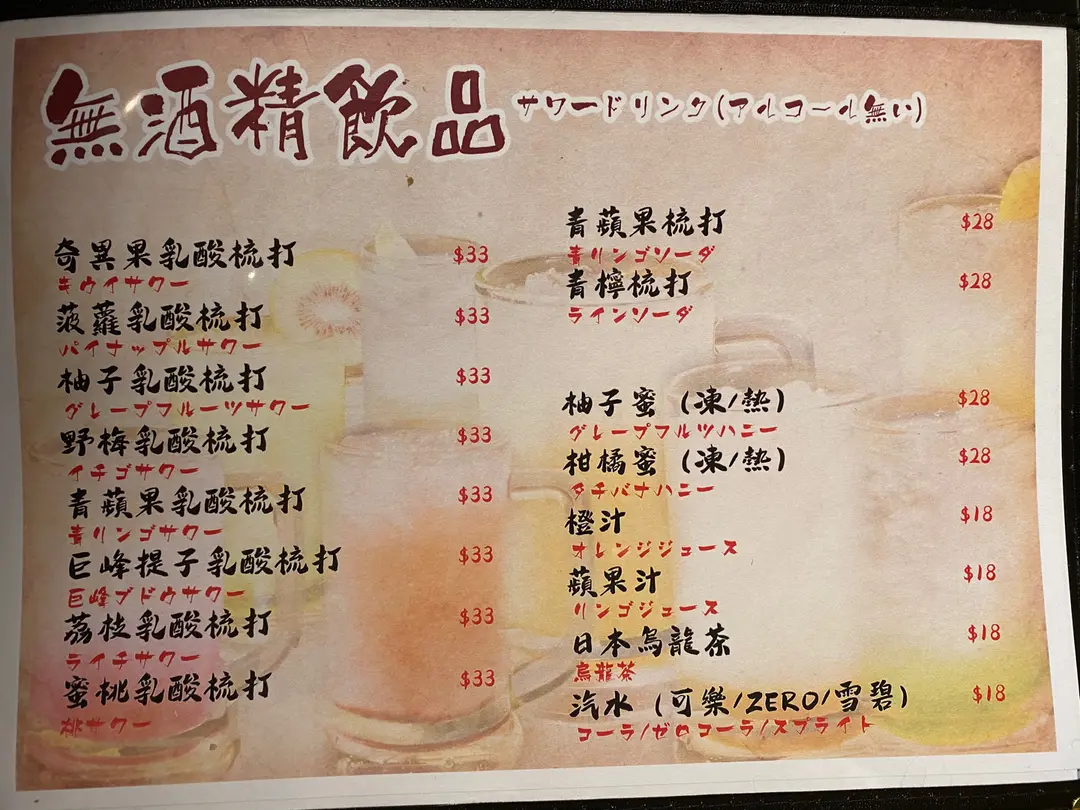 無酒精飲品 サワードリンク(アルコール無い)
奇異果乳酸梳打 $33
キウイサワー
菠蘿乳酸梳打 $33
パイナップルサワー
柚子乳酸梳打 $33
グレープフルーツサワー
野梅乳酸梳打 $33
イチゴサワー
青蘋果乳酸梳打 $33
青リンゴサワー
巨峰提子乳酸梳打 $33
巨峰ブドウサワー
荔枝乳酸梳打 $33
ライチサワー
蜜桃乳酸梳打 $33
桃サワー
青蘋果梳打 $28
青リンゴソーダ
青檸梳打 $28
ラインソーダ
柚子蜜 (凍/熱) $28
グレープフルツハニー
柑橘蜜 (凍/熱) $28
タチバナハニー
橙汁 $18
オレンジジュース
蘋果汁 $18
リンゴジュース
日本烏龍茶 $18
烏龍茶
汽水 (可樂/ZERO/雪碧) $18
コーラ/ゼロコーラ/スプライト